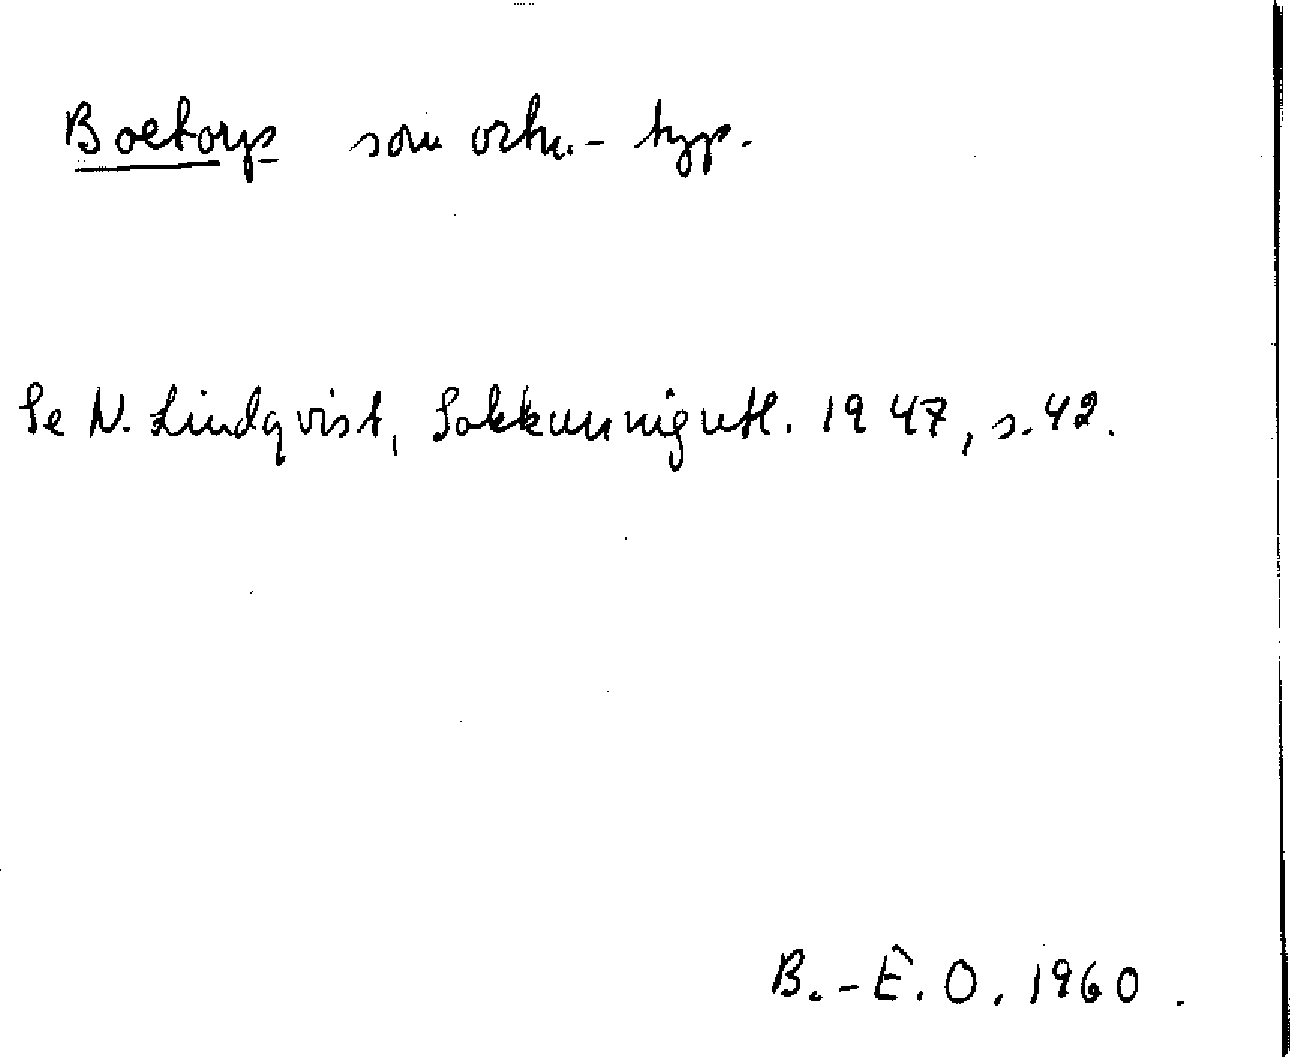 Boetorp som ortn.-typ.
Se N. Lindqvist, Sokkumnigutl. 1947, s. 42.
B.-E. O. 1960.